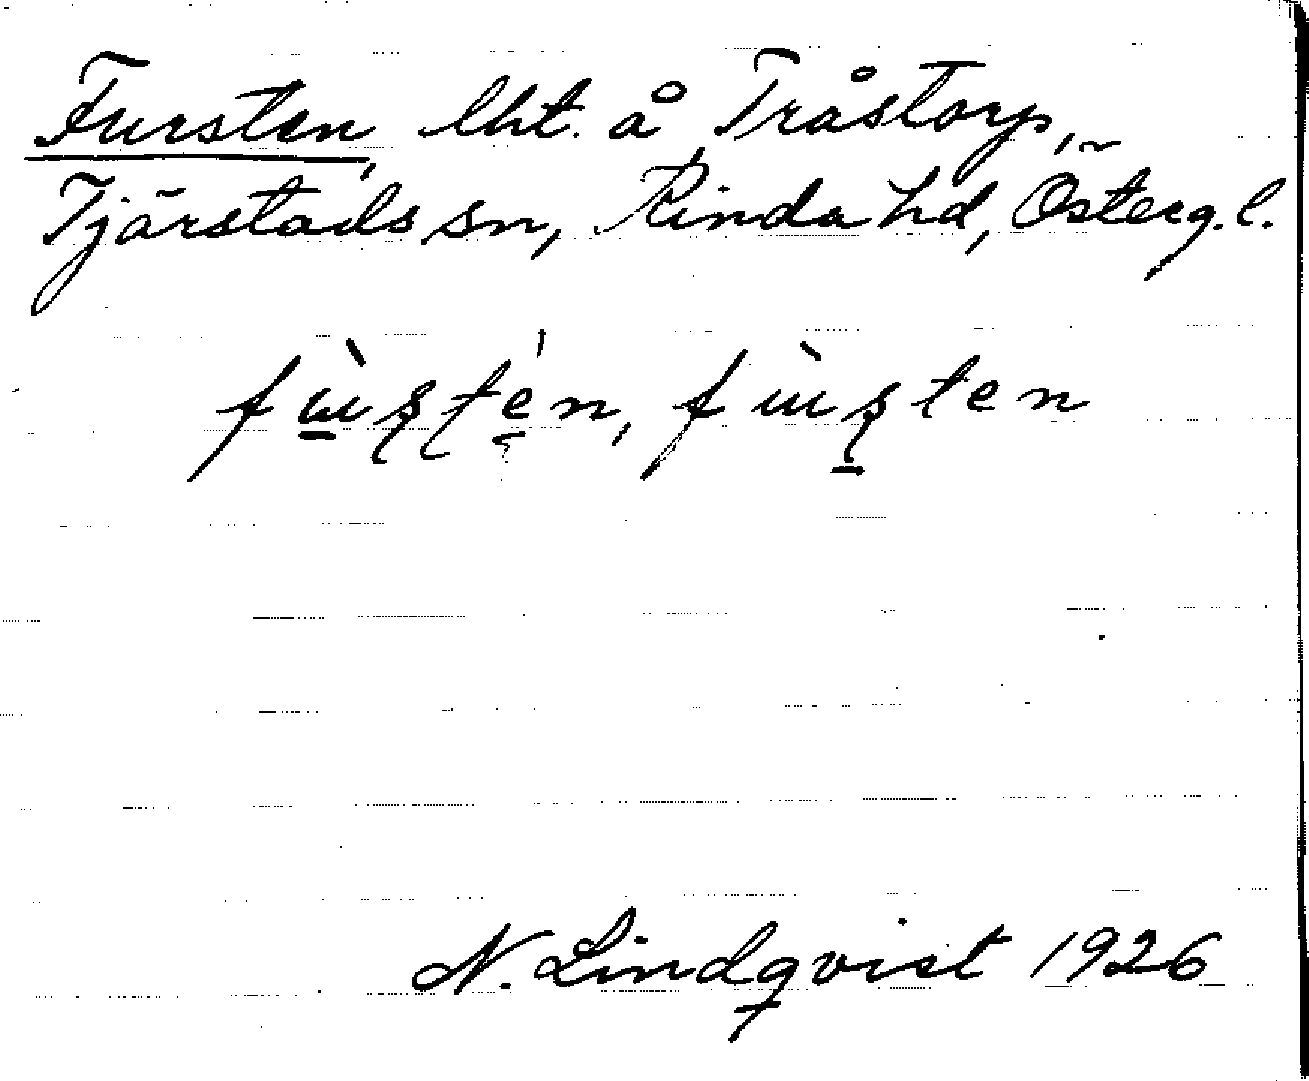 Fursten, lht. å Tråstorp,
Tjärstads sn, Kinda hd, Österg. l.
N. Lindqvist 1926